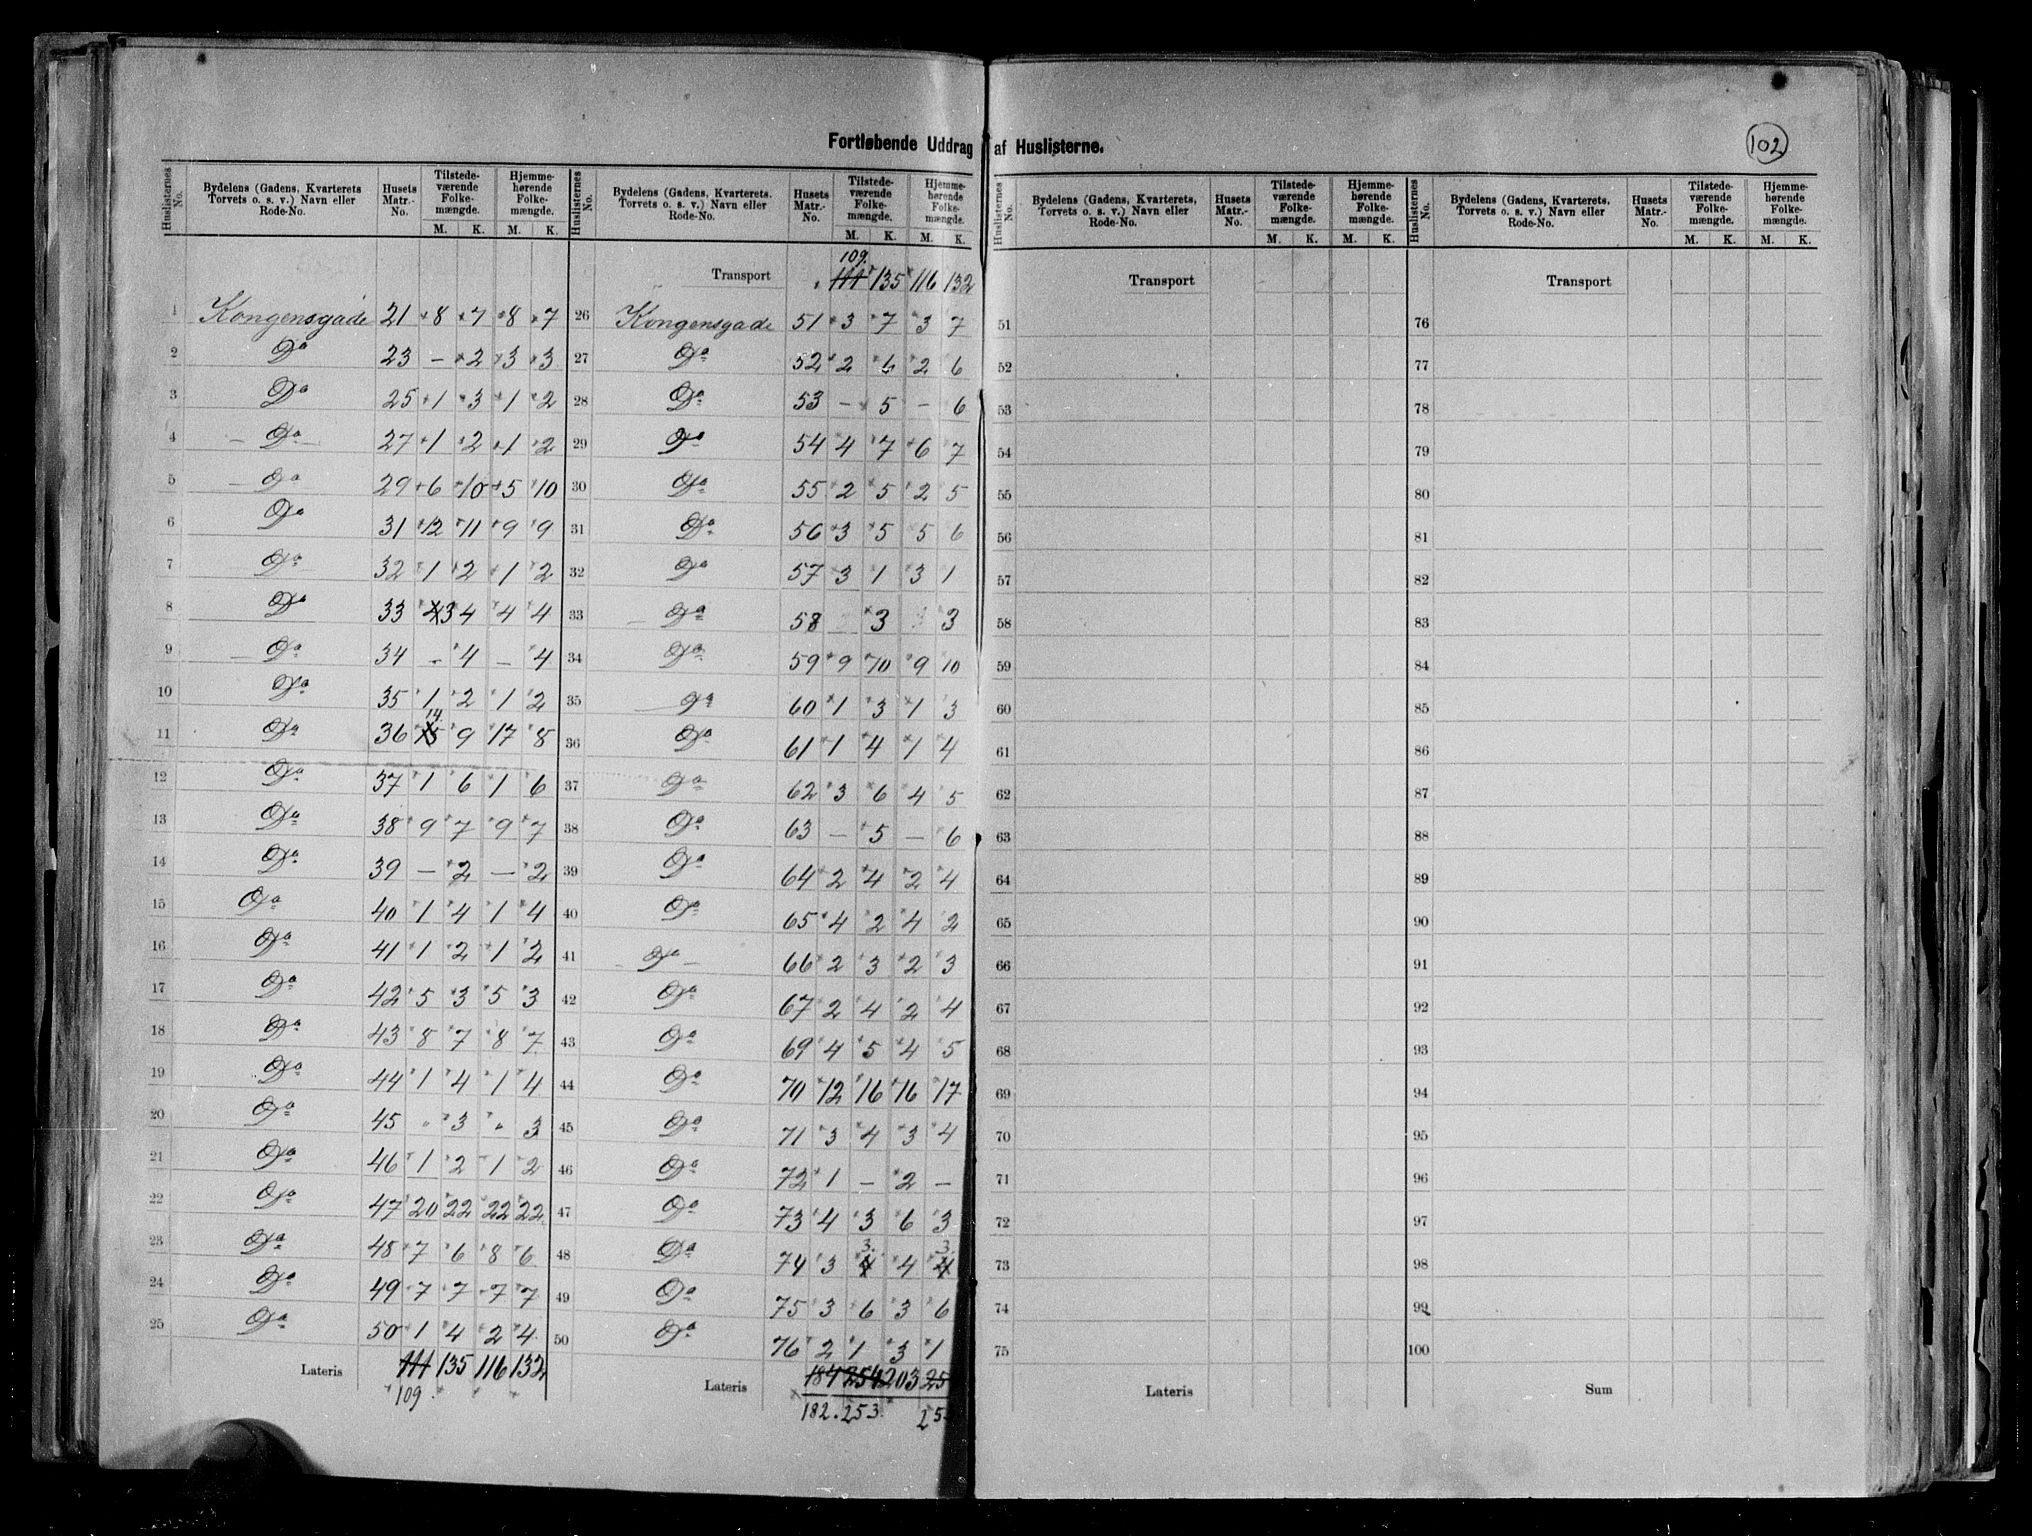 Fortløbende Uddrag af Huslisterne.
102
Huslisternes No. | Bydelens (Gadens, Kvarterets Torvets o. s. v.) Navn eller Rode-No. | Husets Matr.-No. | Tilstedeværende Folkemængde. M. K. | Hjemmehørende Folkemængde. M. K.
1 Kongensgade 21 8 7 8 7
2 Do 23 — 2 3 3
3 Do 25 1 3 1 2
4 Do 27 1 2 1 2
5 Do 29 6 10 5 10
6 Do 31 12 11 9 9
7 Do 32 1 2 1 2
8 Do 33 4 3 4 4 4
9 Do 34 — 4 — 4
10 Do 35 1 2 1 2
11 Do 36 15 14 9 17 8
12 Do 37 1 6 1 6
13 Do 38 9 7 9 7
14 Do 39 — 2 — 2
15 Do 40 1 4 1 4
16 Do 41 1 2 1 2
17 Do 42 5 3 5 3
18 Do 43 8 7 8 7
19 Do 44 1 4 1 4
20 Do 45 " 3 " 3
21 Do 46 1 2 1 2
22 Do 47 20 22 22 22
23 Do 48 7 6 8 6
24 Do 49 7 7 7 7
25 Do 50 1 4 2 4
Lateris 111 135 116 132
109
Huslisternes No. | Bydelens (Gadens, Kvarterets. Torvets o. s. v.) Navn eller Rode-No. | Husets Matr.-No. | Tilstedeværende Folkemængde. M. K. | Hjemmehørende Folkemængde. M. K.
109.
Transport 111 135 116 132
26 Kongensgade 51 3 7 3 7
27 Do 52 2 6 2 6
28 Do 53 — 5 — 6
29 Do 54 4 7 6 7
30 Do 55 2 5 2 5
31 Do 56 3 5 5 6
32 Do 57 3 1 3 1
33 Do 58 3 3
34 Do 59 9 10 9 10
35 Do 60 1 3 1 3
36 Do 61 1 4 1 4
37 Do 62 3 6 4 5
38 Do 63 — 5 — 6
39 Do 64 2 4 2 4
40 Do 65 4 2 4 2
41 Do 66 2 3 2 3
42 Do 67 2 4 2 4
43 Do 69 4 5 4 5
44 Do 70 12 16 16 17
45 Do 71 3 4 3 4
46 Do 72 1 — 2 —
47 Do 73 4 3 6 3
48 Do 74 3 4 3. 4 4 3.
49 Do 75 3 6 3 6
50 Do 76 2 1 3 1
Lateris 184 254 203 25
182. 253. 25
Huslisternes No. | Bydelens (Gadens, Kvarterets, Torvets o. s. v.) Navn eller Rode-No. | Husets Matr.-No. | Tilstedeværende Folkemængde. M. K. | Hjemmehørende Folkemængde. M. K.
Transport
51
52
53
54
55
56
57
58
59
60
61
62
63
64
65
66
67
68
69
70
71
72
73
74
75
Lateris
Huslisternes No. | Bydelens (Gadens, Kvarterets, Torvets o. s. v.) Navn eller Rode-No. | Husets Matr.-No. | Tilstedeværende Folkemængde. M. K. | Hjemmehørende Folkemængde. M. K.
Transport
76
77
78
79
80
81
82
83
84
85
86
87
88
89
90
91
92
93
94
95
96
97
98
99
100
Sum